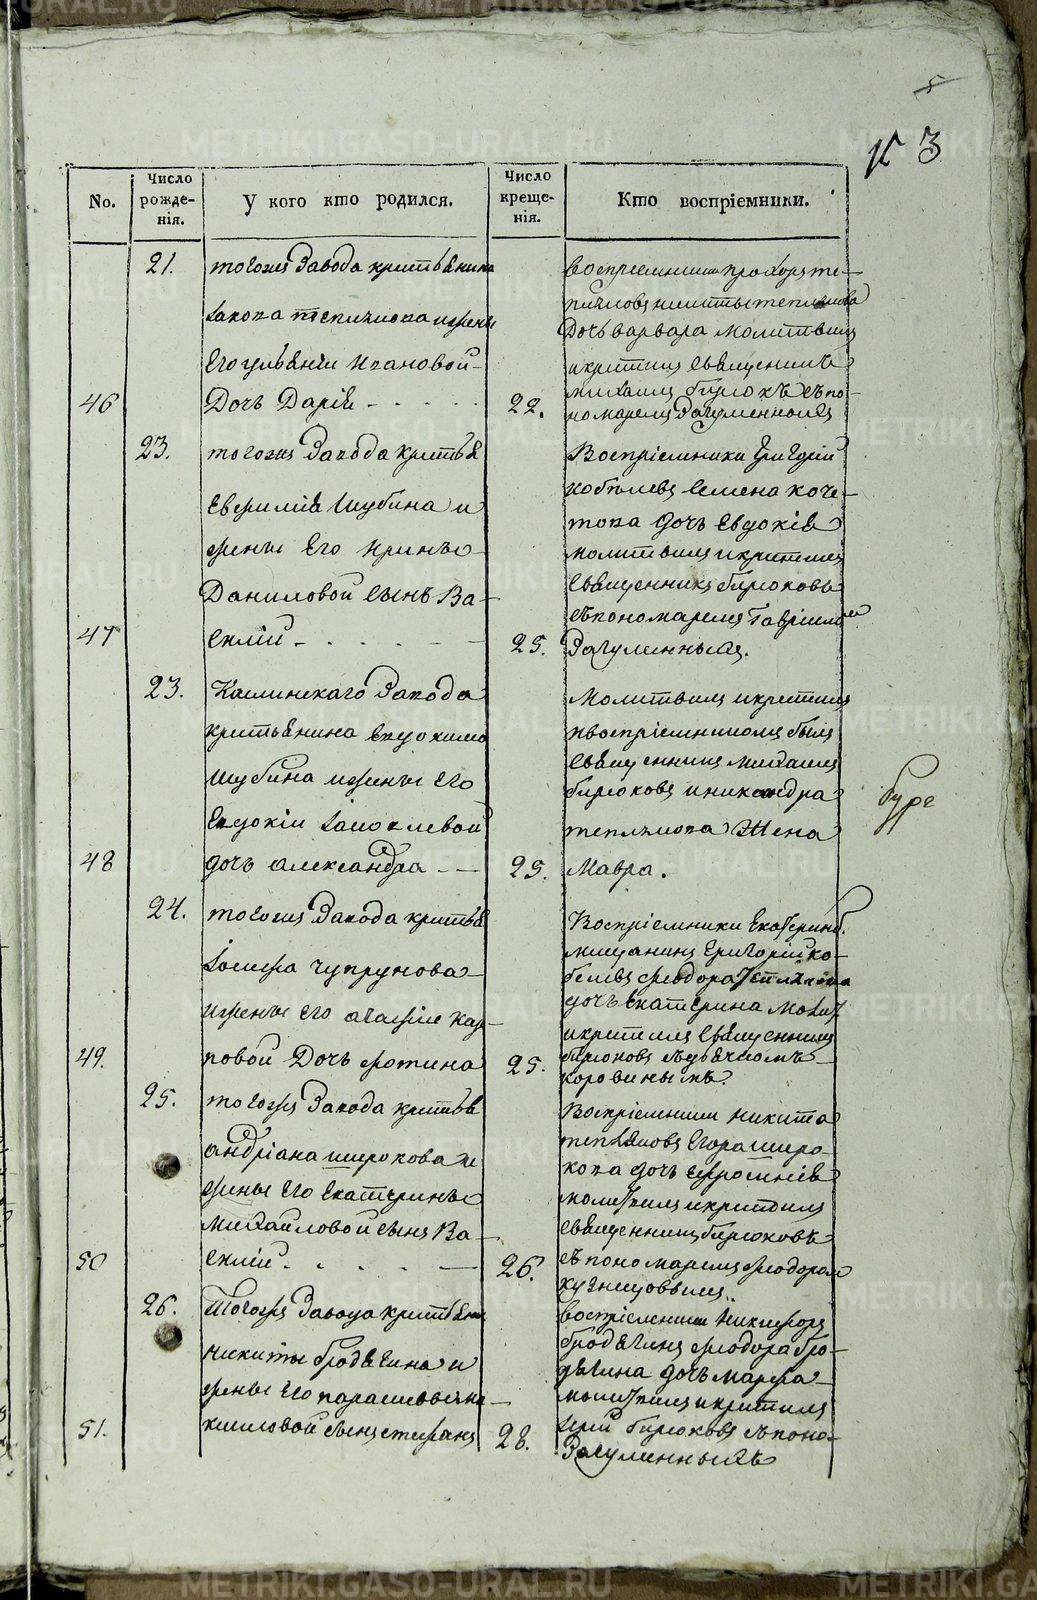 5
№ 3
No.
Число рожде- нія.
У кого кто родился.
Число креще- нія.
Кто воспріемники.
21. тогожъ Завода крестьянина
Якова Тепикова и жены
Его Ульяніи Ивановой
46 Дочь Дарія - - - - - 22.
воспріемники прохоръ те-
никиты
Дочь варвара Молитвилъ
и крестилъ священникъ
михаилъ бирюковъ съ по-
номаремъ Загуменныхъ
23. тогожъ Завода крестья
Евфимія Шубина и
жены Его Ирины
Даниловой сынъ Ва-
47 силій - - - - - 25.
Воспріемники Григорій
кобелевъ Семена коче-
това дочь Евдокія
молитвилъ и крестилъ
священникъ бирюковъ
съ пономаремъ Гавріиломъ
Загуменныхъ.
23. Каслинскаго Завода
крестьянина Евдокима
Шубина и жены Его
Евдокіи Яковлевой
48 дочь александра - - 25.
Молитвилъ и крестилъ
и воспріемникомъ былъ
священникъ михаилъ
бирюковъ и никандра
теплякова Жена
Мавра.
бург
24. тогожъ Завода крестья
Іосифа Чупрунова
и жены Его агафіи Кар-
49. повой Дочь фотина 25.
Воспріемники Екатеринб.
мещанинъ Григорій ко-
белевъ феодора Теплякова
дочь Екатерина Молит
и крестилъ священникъ
бирюковъ съ дьячкомъ
коровинымъ.
25. тогожъ Завода крестья
андріана широкова и
жены Его Екатерины
Михайловой сынъ Ва-
50 силій - - - - - 26.
Воспріемники никита
тепляковъ Егора широ-
кова дочь ефросинія
молитвилъ и крестилъ
священникъ бирюковъ
съ пономаремъ феодоромъ
кузнецовымъ.
26. Тогожъ Завода крестьян
никиты бродягина и
жены Его парасковьи
51. кимовой сынъ стефанъ 28.
воспріемники Никифоръ
бродягинъ феодора бро-
дягина дочь марфа
молитвилъ и крестилъ
Іерей бирюковъ съ поно-
Загуменныхъ
METRIKI.GASO-URAL.RU